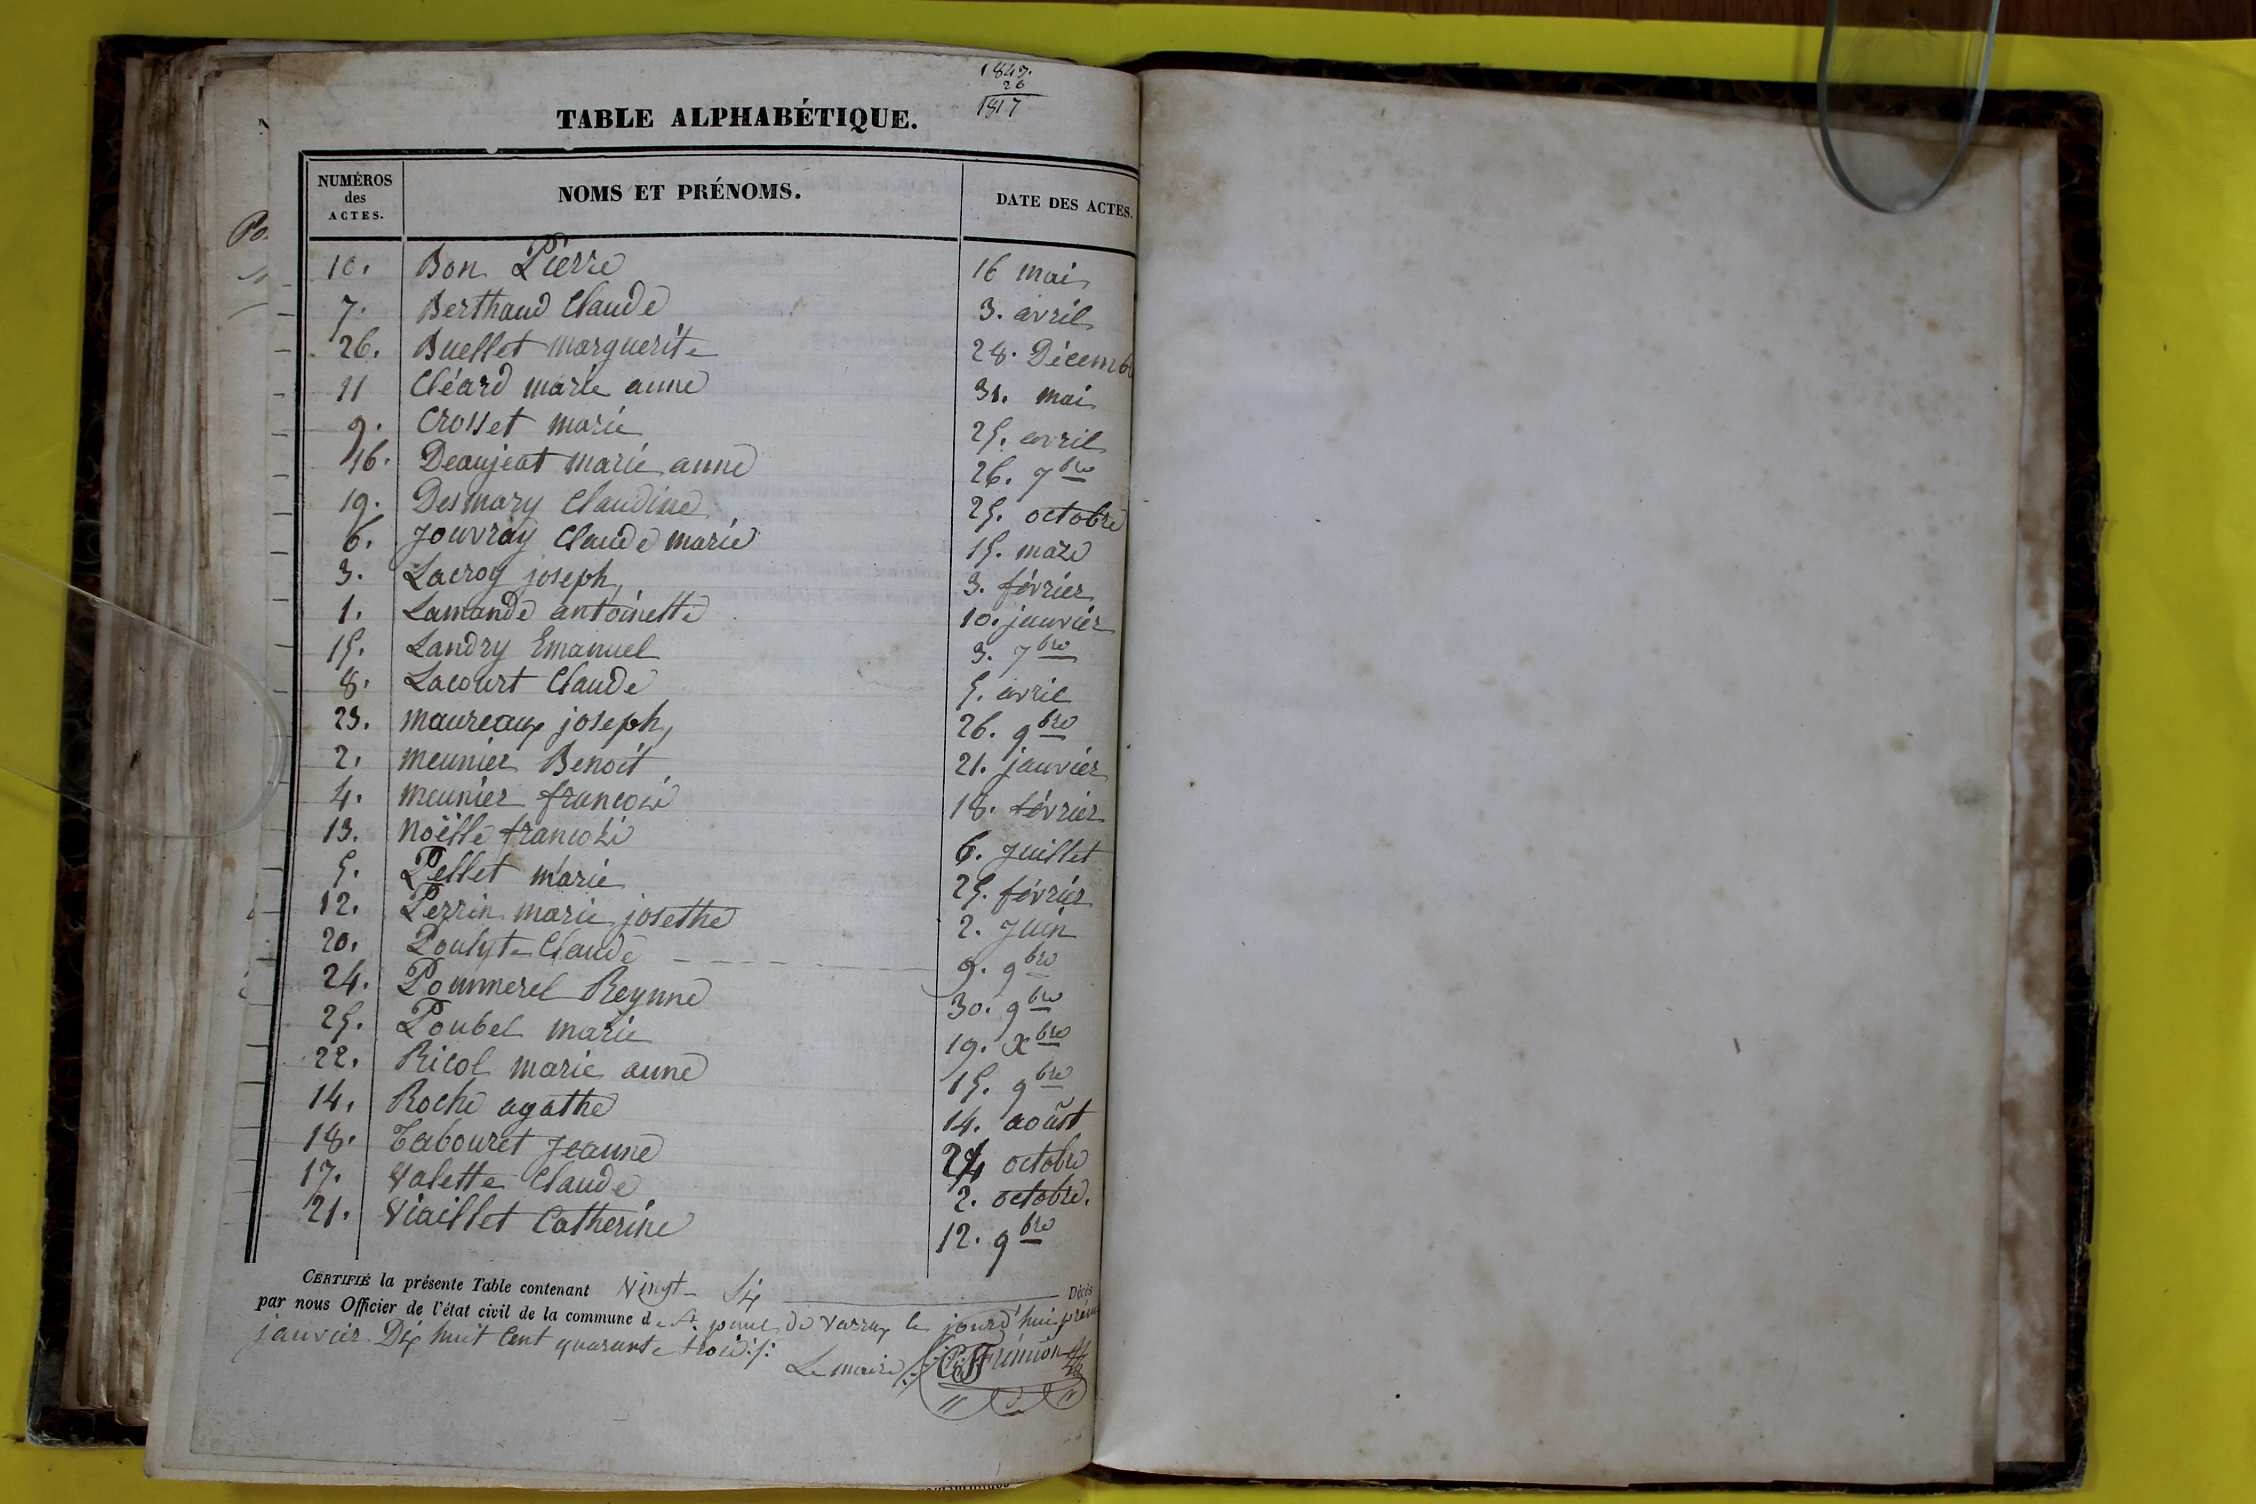 1843.
26
1817
TABLE ALPHABÉTIQUE.
NUMÉROS des ACTES. NOMS ET PRÉNOMS. DATE DES ACTES.
10. Bon Pierre 16 mai
7. Berthaud Claude 3. avril
26. Buellet marguerite 28. Décemb
11 Cléard marie anne 31. mai
9. Crosset marie 25. avril
16. Deaujeat marie anne 26. 7bre
19. Desmary Claudine 25. octobre
6. Jouvray Claude marie 15. mars
3. Lacroy joseph 3. février
1. Lamande antoinette 10. janvier
15. Landry Emanuel 3. 7bre
8. Lacourt Claude 5. avril
23. maureaux joseph 26. 9bre
2. meunier Benoit 21. janvier
4. meunier francois 18. février
13. Noëlle francois 6. Juillet
5. Pellet marie 25. février
12. Perrin marie josethe 2. Juin
20. Poulyte Claude 9. 9bre
24. Pommerel Reynne 30. 9bre
25. Poubel marie 19. Xbre
22. Ricol marie anne 15. 9bre
14. Roche agathe 14. août
18. Tabouret Jeanne 24 octobre
17. Valette Claude 2. octobre.
21. Viaillet Catherine 12. 9bre
CERTIFIÉ la présente Table contenant Vingt-Six Décès
par nous Officier de l'état civil de la commune de St. paul de Varrax le jourd'hui
janvier Dix huit Cent quarante trois
Le maire